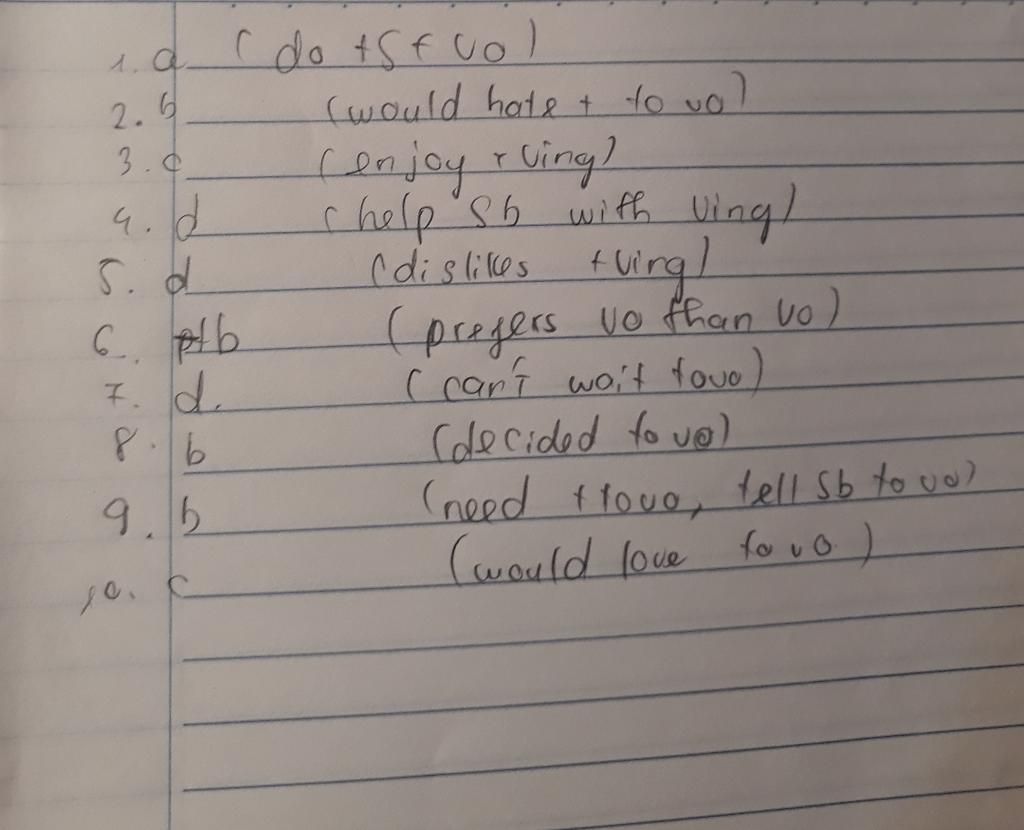 1. a (do + S + vo)
2. b (would hate + to vo)
3. c (enjoy + Ving)
4. d (help Sb with Ving)
5. d (dislikes + Ving)
6. b (prefers vo than vo)
7. d. (can't wait to vo)
8. b (decided to vo)
9. b (need + to vo, tell Sb to vo)
10. c (would love to vo)